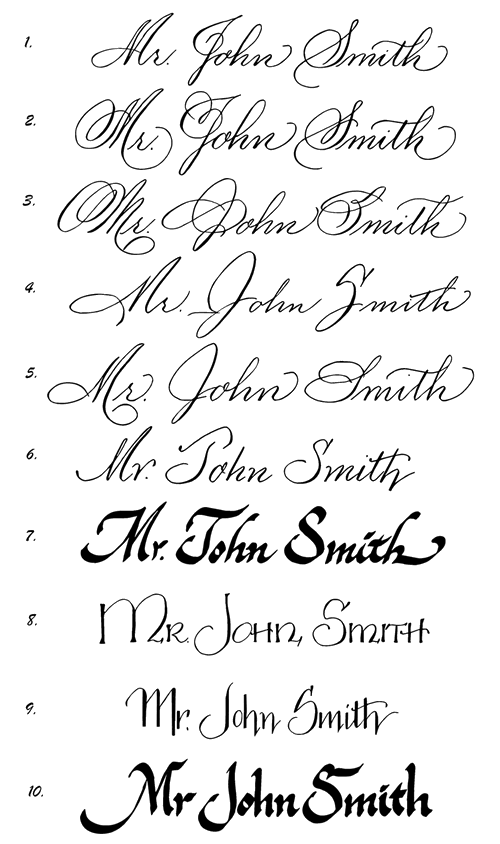 1. Mr. John Smith
2. Mr. John Smith
3. Mr. John Smith
4. Mr. John Smith
5. Mr. John Smith
6. Mr. John Smith
7. Mr. John Smith
8. Mr. John, Smith
9. Mr. John Smith
10. Mr John Smith